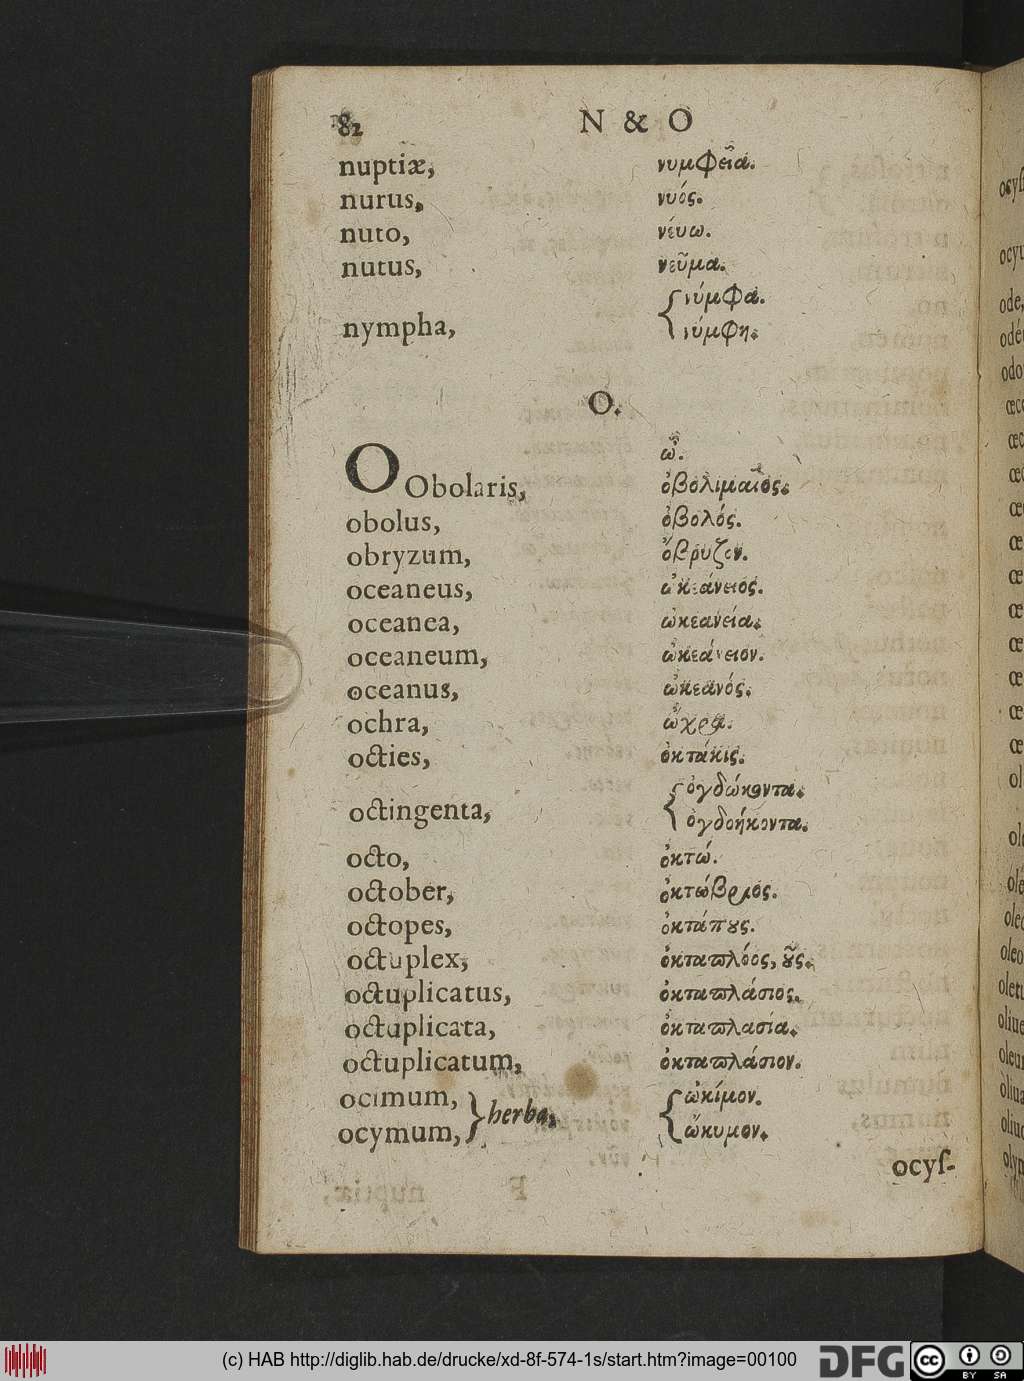 82 N & O
nuptiæ, νυμφεῖα.
nurus, νυός.
nuto, νεύω.
nutus, νεῦμα.
νύμφα.
nympha,
νύμφη.
O.
O ὦ.
Obolaris, ὀβολιμαῖος.
obolus, ὀβολός.
obryzum, ὄβρυζον.
oceaneus, ὠκεάνειος.
oceanea, ὠκεανεία.
oceaneum, ὠκεάνειον.
oceanus, ὠκεανός.
ochra, ὦχρα.
octies, ὀκτάκις.
ὀγδώκοντα.
octingenta,
ὀγδοήκοντα.
octo, ὀκτώ.
october, ὀκτώβριος.
octopes, ὀκτάπους.
octuplex, ὀκταπλόος, οῦς.
octuplicatus, ὀκταπλάσιος.
octuplicata, ὀκταπλασία.
octuplicatum, ὀκταπλάσιον.
ocimum, ὠκίμον.
herba,
ocymum, ὤκυμον.
ocyſ-
(c) HAB http://diglib.hab.de/drucke/xd-8f-574-1s/start.htm?image=00100
DFG
cc BY SA